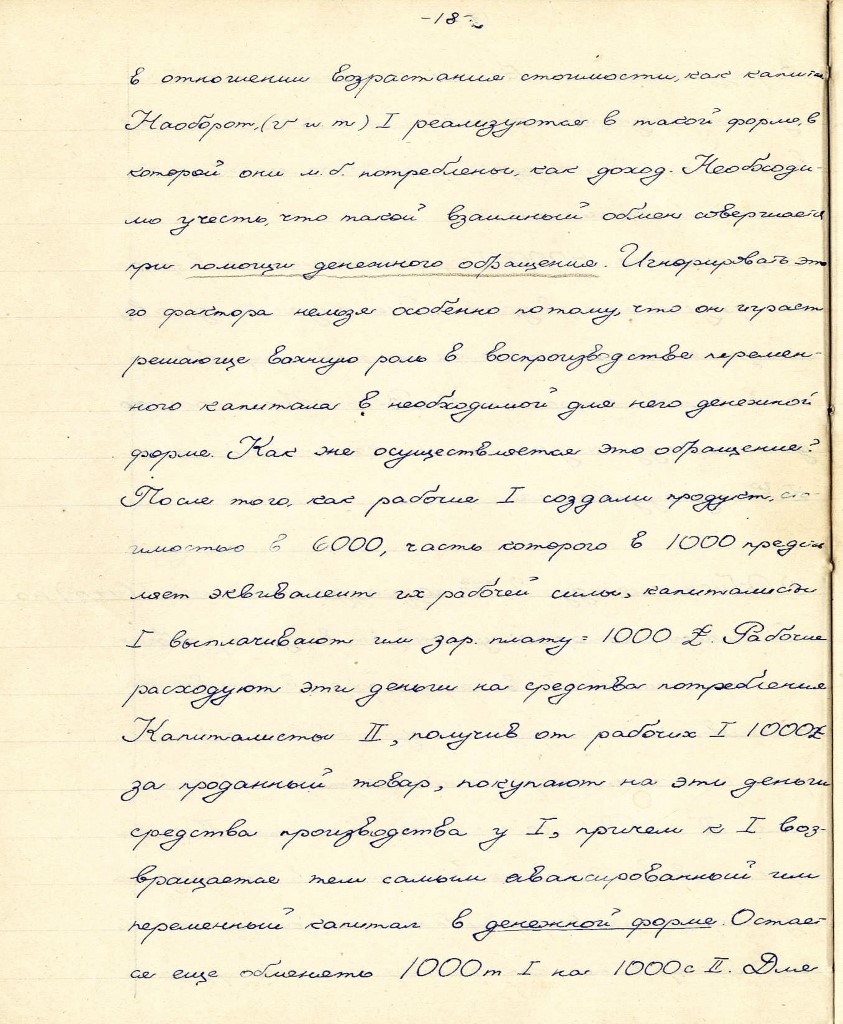 -18-
в отношении возрастания стоимости, как капита
Наоборот, (v и m) I реализуются в такой форме, в
которой они м.б. потреблены, как доход. Необходи-
мо учесть, что такой взаимный обмен совершается
при помощи денежного обращения. Игнорировать это
го фактора нельзя особенно потому, что он играет
решающе важную роль в воспроизводстве перемен-
ного капитала в необходимой для него денежной
форме. Как же осуществляется это обращение?
После того, как рабочие I создали продукт, сто-
имостью в 6000, часть которого в 1000 предста
ляет эквивалент их рабочей силы, капиталисты
I выплачивают им зар. плату = 1000 £. Рабочие
расходуют эти деньги на средства потребления
Капиталисты II, получив от рабочих I 1000£
за проданный товар, покупают на эти деньги
средства производства у I, причем к I воз-
вращается тем самым авансированный им
переменный капитал в денежной форме. Остает
ся еще обменять 1000m I на 1000с II. Для